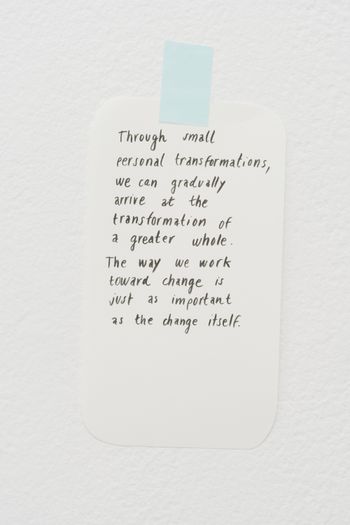 Through small
personal transformations,
we can gradually
arrive at the
transformation of
a greater whole.
The way we work
toward change is
just as important
as the change itself.